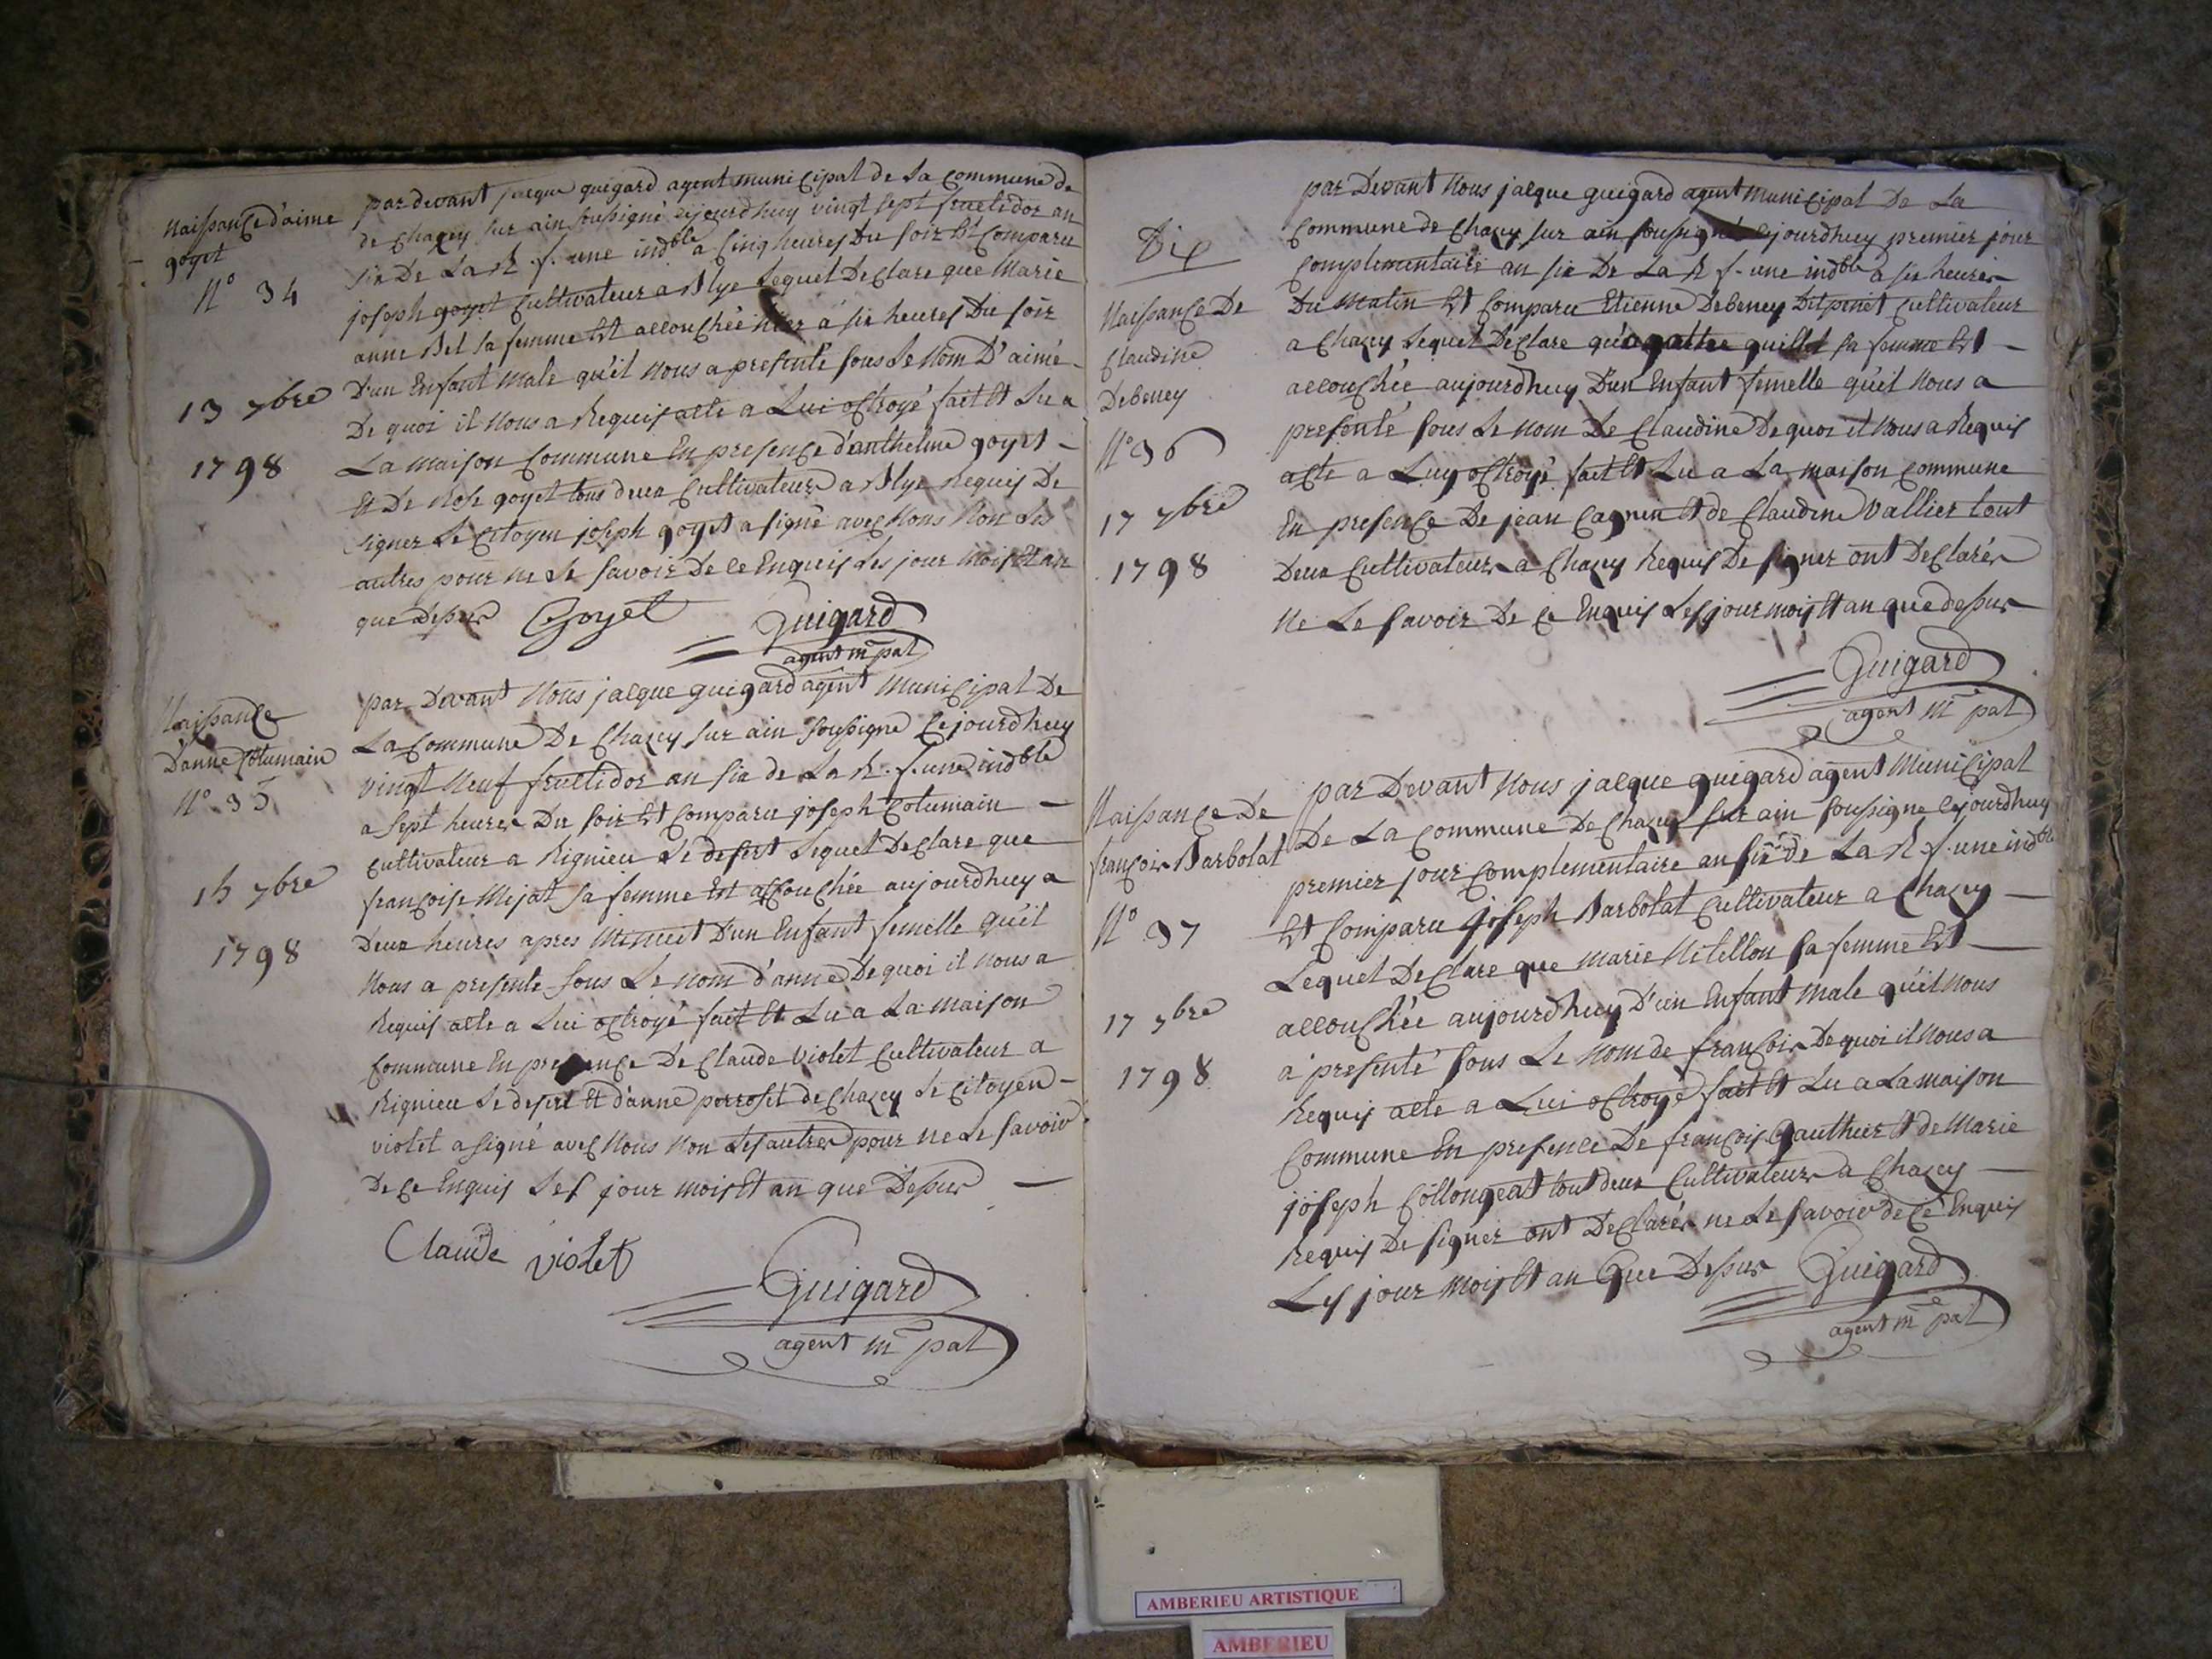 Naissance d'aime
goyet
N° 34
13 7bre
1798
par devant jacque guigard agent municipal de la commune de
de chazey sur ain soussigné cejourdhuy vingt sept fructidor an
six De La R. f. une indble a cinq heures Du soir Est Comparu
joseph goyet Cultivateur a Blye Lequel Declare que Marie
anne Bel sa femme Est accouchée hier à six heures Du soir
D'un Enfant Male qu'il Nous a presenté sous Le Nom D'aimé
De quoi il Nous a Requis acte a Lui octroyé fait Et Lu a
La maison Commune En presence d'anthelme goyet -
Et De Rose goyet tous deux Cultivateurs a Blye Requis De
signer Le Citoyen joseph goyet a signé avec Nous Non Les
autres pour ne Le savoir De ce Enquis Les jour Mois Et an
que Dessus Goyet Guigard
agent m pal
Naissance
D'anne Cotumain
N° 35
15 7bre
1798
par Devant Nous jacque guigard agent Municipal De
La Commune De Chazey sur ain soussigne Cejourdhuy
vingt Neuf fructidor an six de La R. f. une indble
a sept heures Du soir Est Comparu joseph Cotumain -
Cultivateur a Rignieu Le desert Lequel Declare que
françoise Mijat sa femme Est accouchée aujourdhuy a
Deux heures apres Minuit D'un Enfant femelle qu'il
Nous a presente sous Le nom d'anne De quoi il Nous a
Requis acte a Lui octroyé fait Et Lu a La Maison
Commune En presence De Claude Violet Cultivateur a
Rignieu Le desert Et d'anne perroset de Chazey Le Citoyen -
violet a signé avec Nous Non Les autres pour ne Le savoir
De Ce Enquis Les jour mois Et an que Dessus -
Claude violet
Guigard
agent m pal
Dix
Naissance De
Claudine
Debeney
N° 36
17 7bre
1798
par Devant Nous jacque guigard agent Municipal De La
Commune de Chazey sur ain soussigné cejourdhuy premier jour
Complementaire an six De La R f. une indble a six heures
Du Matin Est Comparu Etienne Debeney Dit pinet Cultivateur
a Chazey Lequel Declare qu'agathe guillet sa femme Est -
accouchée aujourdhuy D'un Enfant femelle qu'il Nous a
presenté sous Le nom De Claudine De quoi il Nous a Requis
acte a Luy octroyé fait Et Lu a La maison Commune
En presence De jean Cagnin Et de Claudine Vallier tout
Deux Cultivateurs a Chazey Requis De signer ont Declarés
Ne Le savoir De Ce Enquis Les jour mois Et an que dessus
Guigard
agent m pal
Naissance De
françois Barbolat
N° 37
17 7bre
1798
par Devant Nous jacque guigard agent Municipal
De La Commune De Chazey sur ain soussigne Cejourdhuy
premier jour Complementaire an six de La R. f. une indble
Est Comparu joseph Barbolat Cultivateur a Chazey -
Lequel Declare que marie Mitellon sa femme Est -
accouchée aujourdhuy D'un Enfant Male qu'il Nous
a presenté sous Le Nom de françois De quoi il Nous a
Requis acte a Lui octroyé fait Et Lu a La maison
Commune En presence De françois Gauthier Et de Marie
joseph Collongeat tout deux Cultivateurs a Chazey -
Requis De signer ont Declarés ne Le savoir de Ce Enquis
Les jour Mois Et an Que Dessus Guigard
agent m pal
AMBERIEU ARTISTIQUE
AMBERIEU